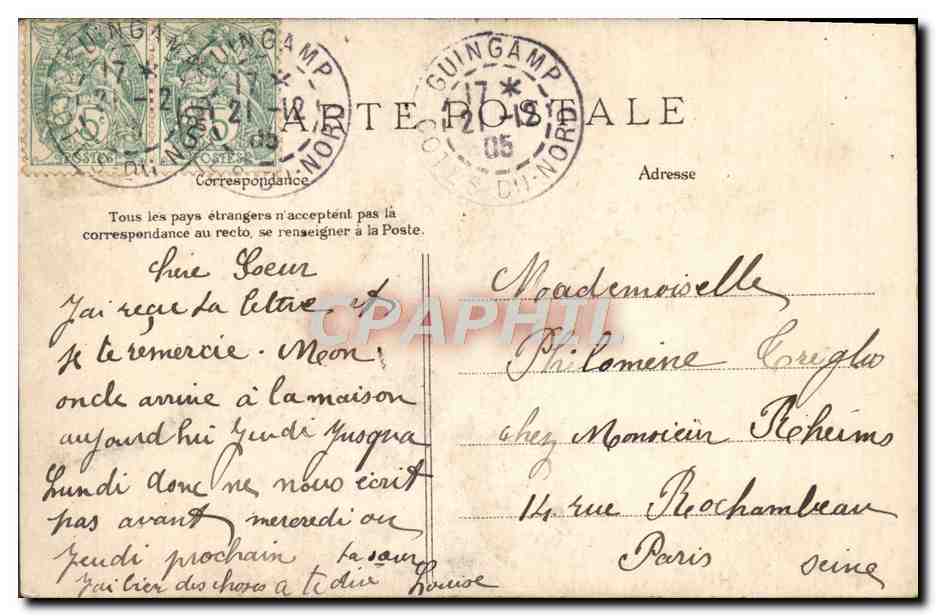 CARTE POSTALE
GUINGAMP
17 *
21 -12
05
COTES-DU-NORD
GUINGAMP
17 *
21 -12
05
COTES-DU-NORD
GUINGAMP
17 *
21 -12
05
COTES-DU-NORD
5c 5c
POSTES POSTES
Correspondance
Adresse
Tous les pays étrangers n'acceptent pas la
correspondance au recto, se renseigner à la Poste.
Chère Soeur
J'ai reçue ta lettre et
je te remercie. Mon
oncle arrive à la maison
aujourd'hui Jeudi Jusqua
Lundi donc ne nous écrit
pas avant mercredi ou
Jeudi prochain ta sœur
J'ai bien des choses a te dire Louise
Mademoiselle
Philomène
chez Monsieur Rheims
14 rue Rochambeau
Paris Seine
CPAPHIL